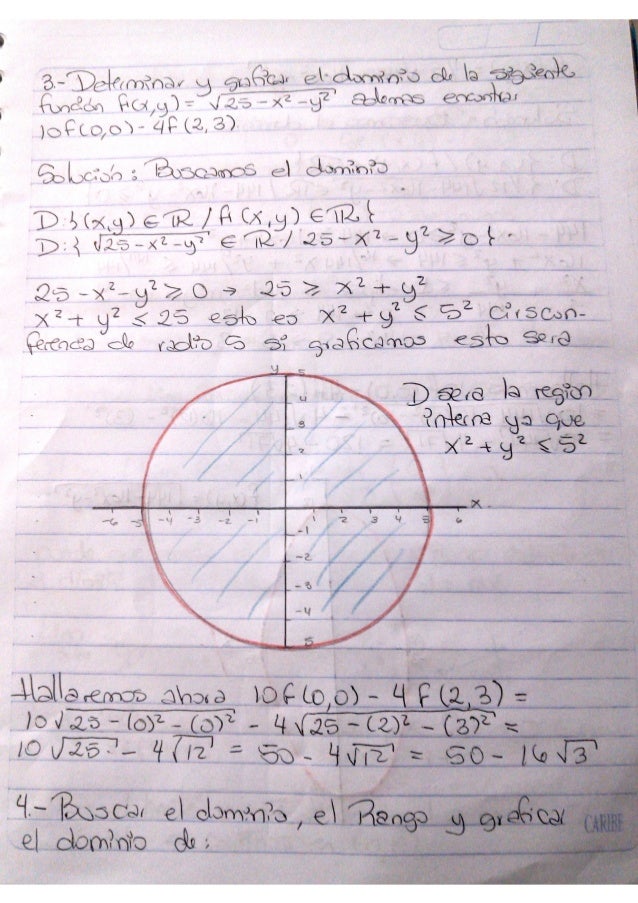 3.- Determinar y graficar el dominio de la siguiente
función f(x,y) = √25-x²-y² ademas encontrar
10f(0,0) - 4f(2,3)
Solución: Buscamos el dominio
D:{(x,y) ∈ ℝ / f(x,y) ∈ ℝ.}
D:{ √25-x²-y² ∈ ℝ / 25-x²-y² ≥ 0}.
25-x²-y² ≥ 0 → 25 ≥ x² + y²
x² + y² ≤ 25 esto es x² + y² ≤ 5² circuns con-
ferencia de radio 5 si graficamos esto sera
y 5
4
3
2
1
D sera la region
interna ya que
x² + y² ≤ 5²
-6 -5 -4 -3 -2 -1 1 2 3 4 5 6 x.
-1
-2
-3
-4
5
Hallaremos ahora 10f(0,0) - 4f(2,3) =
10√25-(0)²-(0)² - 4√25-(2)²-(3)² =
10√25 - 4√12 = 50 - 4√12 = 50 - 16√3
4.- Buscar el dominio, el Rango y graficar
el dominio de:
CARIBE